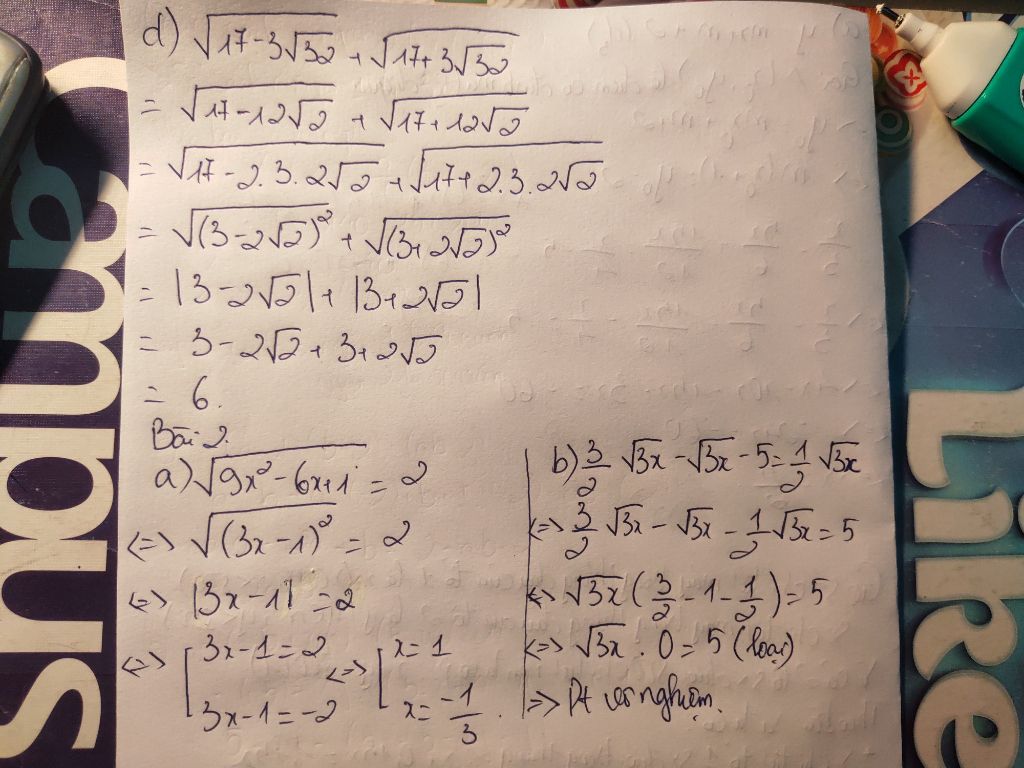 d) √(17-3√32) + √(17+3√32)
= √(17-12√2) + √(17+12√2)
= √(17-2.3.2√2) + √(17+2.3.2√2)
= √((3-2√2)²) + √((3+2√2)²)
= |3-2√2| + |3+2√2|
= 3-2√2 + 3+2√2
= 6.
Bài 2.
a) √(9x²-6x+1) = 2
<=> √((3x-1)²) = 2
<=> |3x-1| = 2
<=> [ 3x-1=2 <=> [ x=1
3x-1=-2 x=-1/3.
b) 3/2 √3x - √3x - 5 = 1/2 √3x
<=> 3/2 √3x - √3x - 1/2 √3x = 5
<=> √3x (3/2 - 1 - 1/2) = 5
<=> √3x . 0 = 5 (loại)
=> Pt vô nghiệm.
Samsung
Like